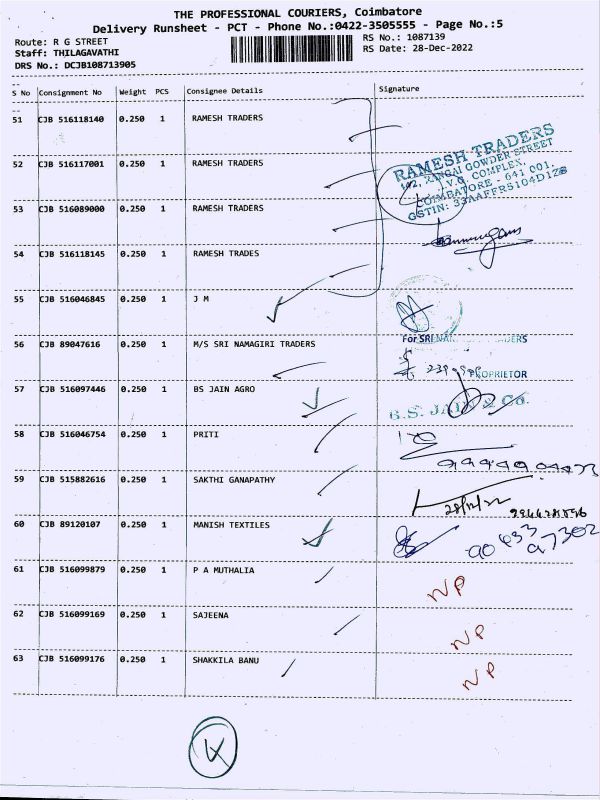 THE PROFESSIONAL COURIERS, Coimbatore
Delivery Runsheet - PCT - Phone No.:0422-3505555 - Page No.:5
Route: R G STREET
RS No.: 1087139
Staff: THILAGAVATHI
RS Date: 28-Dec-2022
DRS No.: DCJB108713905
S No Consignment No Weight PCS Consignee Details Signature
51 CJB 516118140 0.250 1 RAMESH TRADERS
52 CJB 516117001 0.250 1 RAMESH TRADERS
RAMESH TRADERS
GOWDER STREET
V.G. COMPLEX,
COIMBATORE - 641 001.
GSTIN: 33AAFFR5104D1Z8
53 CJB 516089000 0.250 1 RAMESH TRADERS
54 CJB 516118145 0.250 1 RAMESH TRADES
55 CJB 516046845 0.250 1 J M
56 CJB 89047616 0.250 1 M/S SRI NAMAGIRI TRADERS
For
PROPRIETOR
57 CJB 516097446 0.250 1 BS JAIN AGRO
B.S. JAIN & Co.
58 CJB 516046754 0.250 1 PRITI
59 CJB 515882616 0.250 1 SAKTHI GANAPATHY
28/12/22
60 CJB 89120107 0.250 1 MANISH TEXTILES
61 CJB 516099879 0.250 1 P A MUTHALIA
NP
62 CJB 516099169 0.250 1 SAJEENA
NP
63 CJB 516099176 0.250 1 SHAKKILA BANU
NP
4